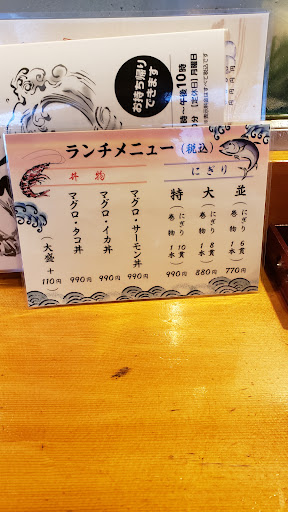 お持ち帰り
できます
午後10時
【定休日】月曜日
ランチメニュー（税込）
にぎり
並（にぎり6貫 巻物1本）770円
大（にぎり8貫 巻物1本）880円
特（にぎり10貫 巻物1本）990円
丼物
マグロ・サーモン丼 990円
マグロ・イカ丼 990円
マグロ・タコ丼 990円
（大盛＋110円）